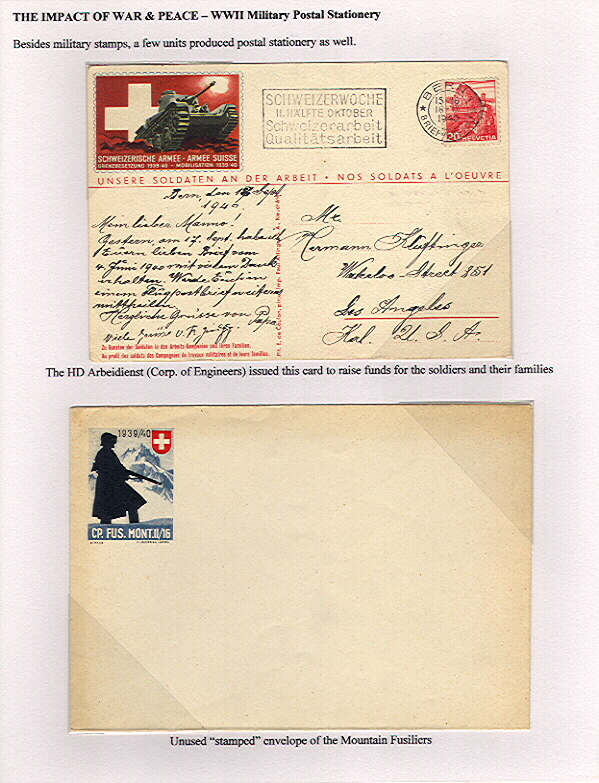 THE IMPACT OF WAR & PEACE – WWII Military Postal Stationery
Besides military stamps, a few units produced postal stationery as well.
SCHWEIZERISCHE ARMEE - ARMEE SUISSE
GRENZBESETZUNG 1939-40 - MOBILISATION 1939-40
SCHWEIZERWOCHE
II. HÄLFTE OKTOBER
Schweizerarbeit
Qualitätsarbeit
BERN
20 HELVETIA
UNSERE SOLDATEN AN DER ARBEIT • NOS SOLDATS A L'OEUVRE
Bern, den 18 Sept
1940
Mein lieber Manno!
Gestern, am 17. Sept. habe ich
Euern lieben Brief vom
4. Juni 1940 mit vielen Dank
erhalten. Werde Euch in
einem Flugpostbrief weiteres
mittheilen.
Herzliche Grüsse von Papa.
viele Grüsse
Zu Gunsten der Soldaten in den Arbeits-Kompanien und ihren Familien.
Au profit des soldats des Compagnies de travaux militaires et de leurs familles.
Mr.
Hermann Kluftinger
Waterloo-Street 3251
Los Angeles
Kal. U.S.A.
The HD Arbeidienst (Corp. of Engineers) issued this card to raise funds for the soldiers and their families
1939/40
CP. FUS. MONT. II/16
Unused “stamped” envelope of the Mountain Fusiliers